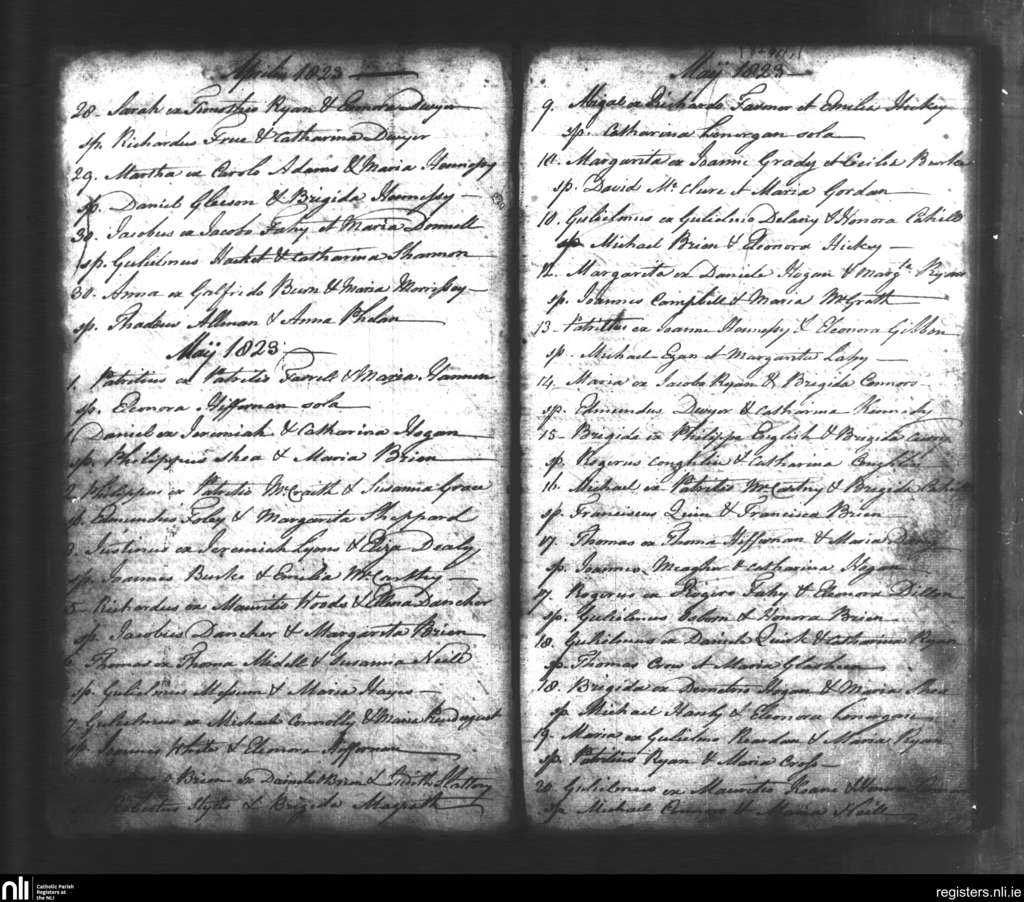 Aprilis 1823
28. Sarah ex Timotheo Ryan & Eleonora Dwyer
sp. Richardus Free & Catharina Dwyer
29. Martha ex Carolo Adams & Maria Hennessy
sp. Daniel Gleeson & Brigida Hennessy
30. Jacobus ex Jacobo Fahy et Maria Donnell
sp. Gulielmus Hacket & Catharina Shannon
30. Anna ex Galfrido Burn & Maria Morrissey
sp. Thadeus Allman & Anna Phelan
Maij 1823
1. Patritius ex Patritio Farrell & Maria
sp. Eleonora Hiffernan sola
Daniel ex Jeremiah & Catharina Hogan
sp. Philippus Shea & Maria Brien
Philippus ex Patritio McCraith & Susanna Grace
sp. Edmundus Foley & Margarita Sheppard
Justinus ex Jeremiah Lyons & Eliza Dealy
sp. Joannes Burke & Emelia McCarthy
5. Richardus ex Mauritio Woods & Ellena Dancher
sp. Jacobus Dancher & Margarita Brien
Thomas ex Thoma & Susanna Neill
sp. Gulielmus & Maria Hayes
7. Gulielmus ex Michaele Connolly & Maria
sp. Joannes White & Eleonora Heffernan
Brien ex Daniele Brien & Judith Slattery
& Brigida Magrath
Maij 1823
9. ex Richardo & Emelia Hickey
sp. Catharina Lonorgan sola
10. Margarita ex Joanne Grady et Cecilia Burke
sp. David McClure et Maria Gordan
10. Gulielmus ex Gulielmo Delany & Honora Cahill
sp. Michael Brien & Eleonora Hickey
12. Margarita ex Daniele Hogan & Margta Ryan
sp. Joannes Campbell & Maria McGrath
13. Patritius ex Joanne Hennessy & Eleonora Gibbon
sp. Michael Egan et Margarita Lahy
14. Maria ex Jacobo Ryan & Brigida Connors
sp. Edmundus Dwyer & Catharina Kennedy
15. Brigida ex Philippo English & Brigida
sp. Rogerus Coughlin & Catharina Coughlin
16. Michael ex Patritio McCartny & Brigida
sp. Franciscus Quin & Francisca Brien
17. Thomas ex Thoma Hiffernan & Maria
sp. Joannes Meagher & Catharina Hogan
17. Rogerus ex Rogero Fahy & Eleonora Dillon
sp. Gulielmus Osborn & Honora Brien
18. Gulielmus ex Daniele Quirk & Catharina Ryan
sp. Thomas Crow et Maria Glasheen
18. Brigida ex Demetrio Hogan & Maria Shea
sp. Michael Hanly & Eleonora Lonorgan
19. Maria ex Gulielmo Reardon & Maria Ryan
sp. Patritius Ryan & Maria Cross
20. Gulielmus ex Mauritio Keane & Honora
sp. Michael Connors & Maria Neill
nli
Catholic Parish
Registers at
the NLI
registers.nli.ie